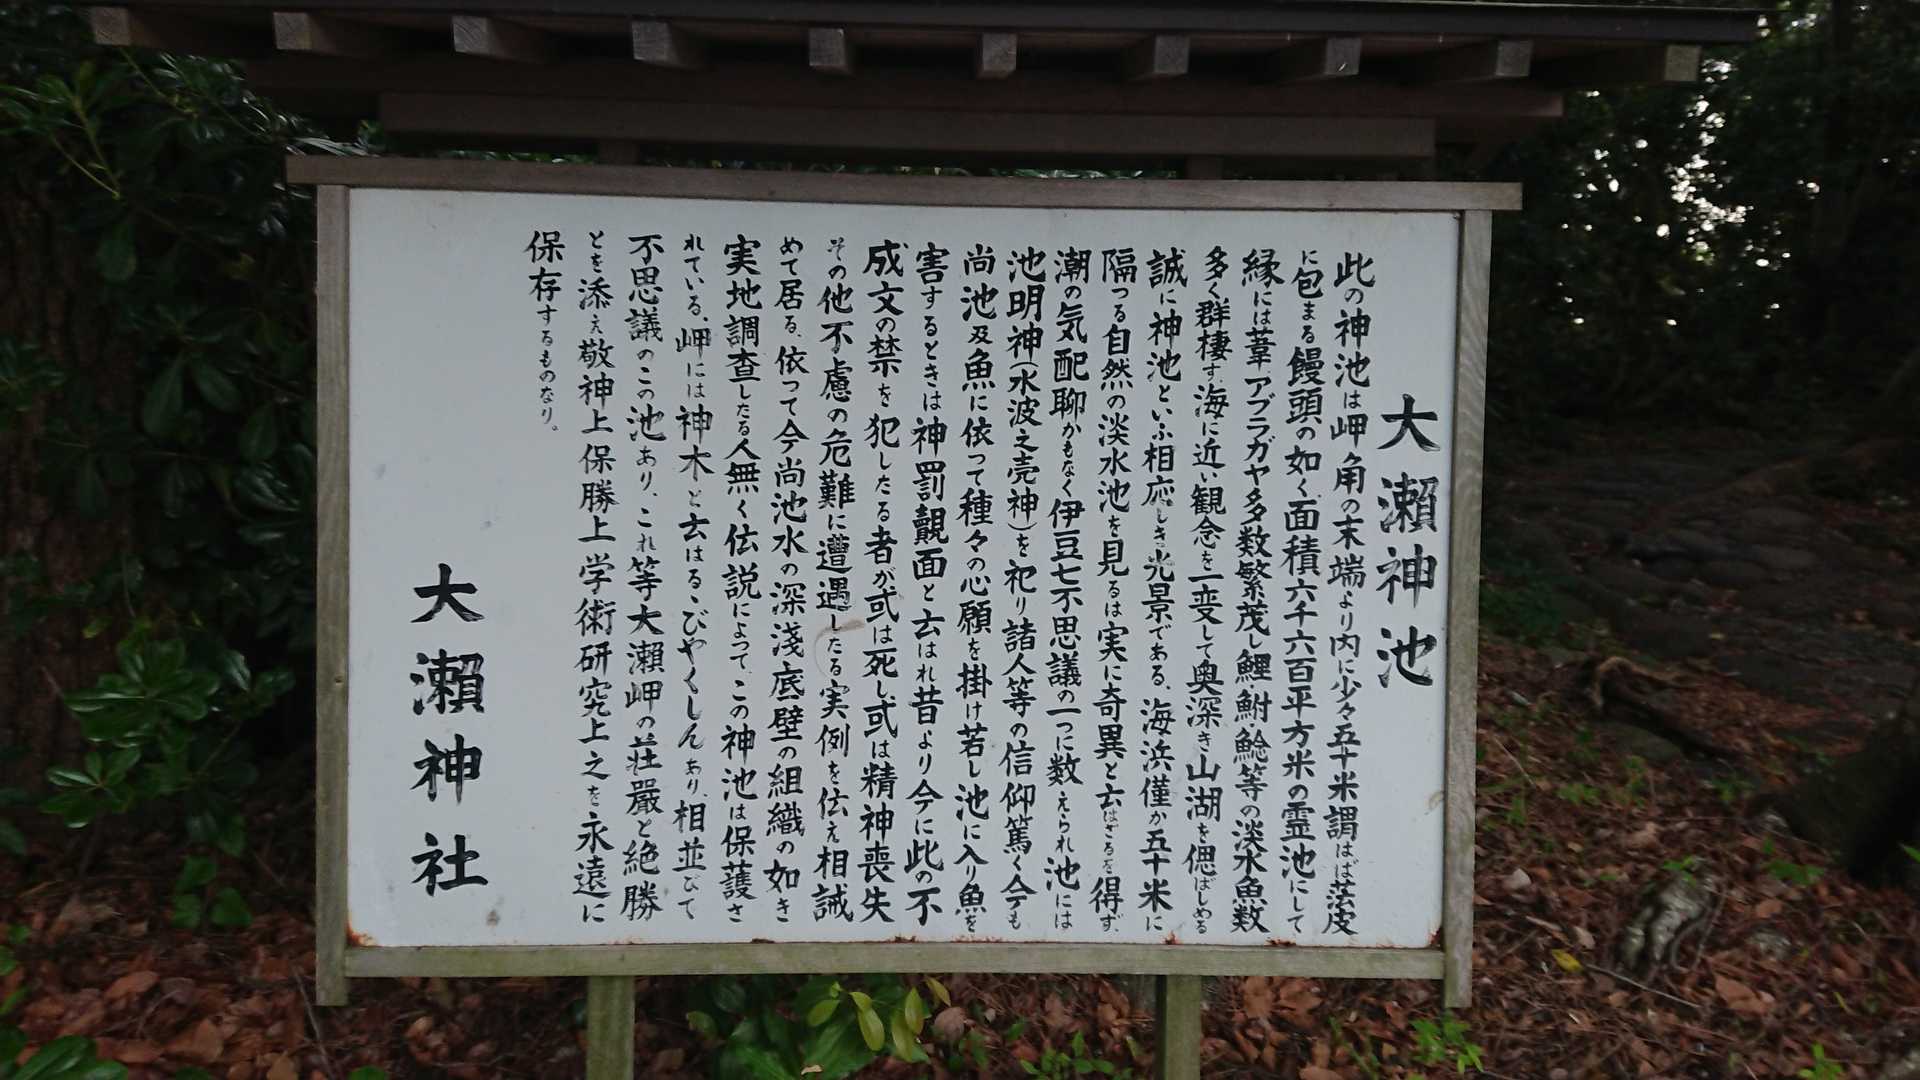 大瀬神池
此の神池は岬角の末端より内に少々五十米謂はば法皮
に包まる饅頭の如く、面積六千六百平方米の霊池にして
縁には葦、アブラガヤ多数繁茂し鯉、鮒、鯰等の淡水魚数
多く群棲す、海に近い観念を一変して奥深き山湖を偲ばしめる
誠に神池といふ相応しき光景である、海浜僅か五十米に
隔つる自然の淡水池を見るは実に奇異と云はざるを得ず、
潮の気配聊かもなく伊豆七不思議の一つに数えられ池には
池明神(水波之売神)を祀り諸人等の信仰篤く今も
尚池及魚に依って種々の心願を掛け若し池に入り魚を
害するときは神罰覿面と云はれ昔より今に此の不
成文の禁を犯したる者が或は死し或は精神喪失
その他不慮の危難に遭遇したる実例を伝え相誡
めて居る、依って今尚池水の深淺底壁の組織の如き
実地調査したる人無く伝説によって、この神池は保護さ
れている、岬には神木と云はるゝびやくしんあり、相並びて
不思議のこの池あり、これ等大瀬岬の荘嚴と絶勝
とを添え敬神上保勝上学術研究上之を永遠に
保存するものなり。
大瀬神社